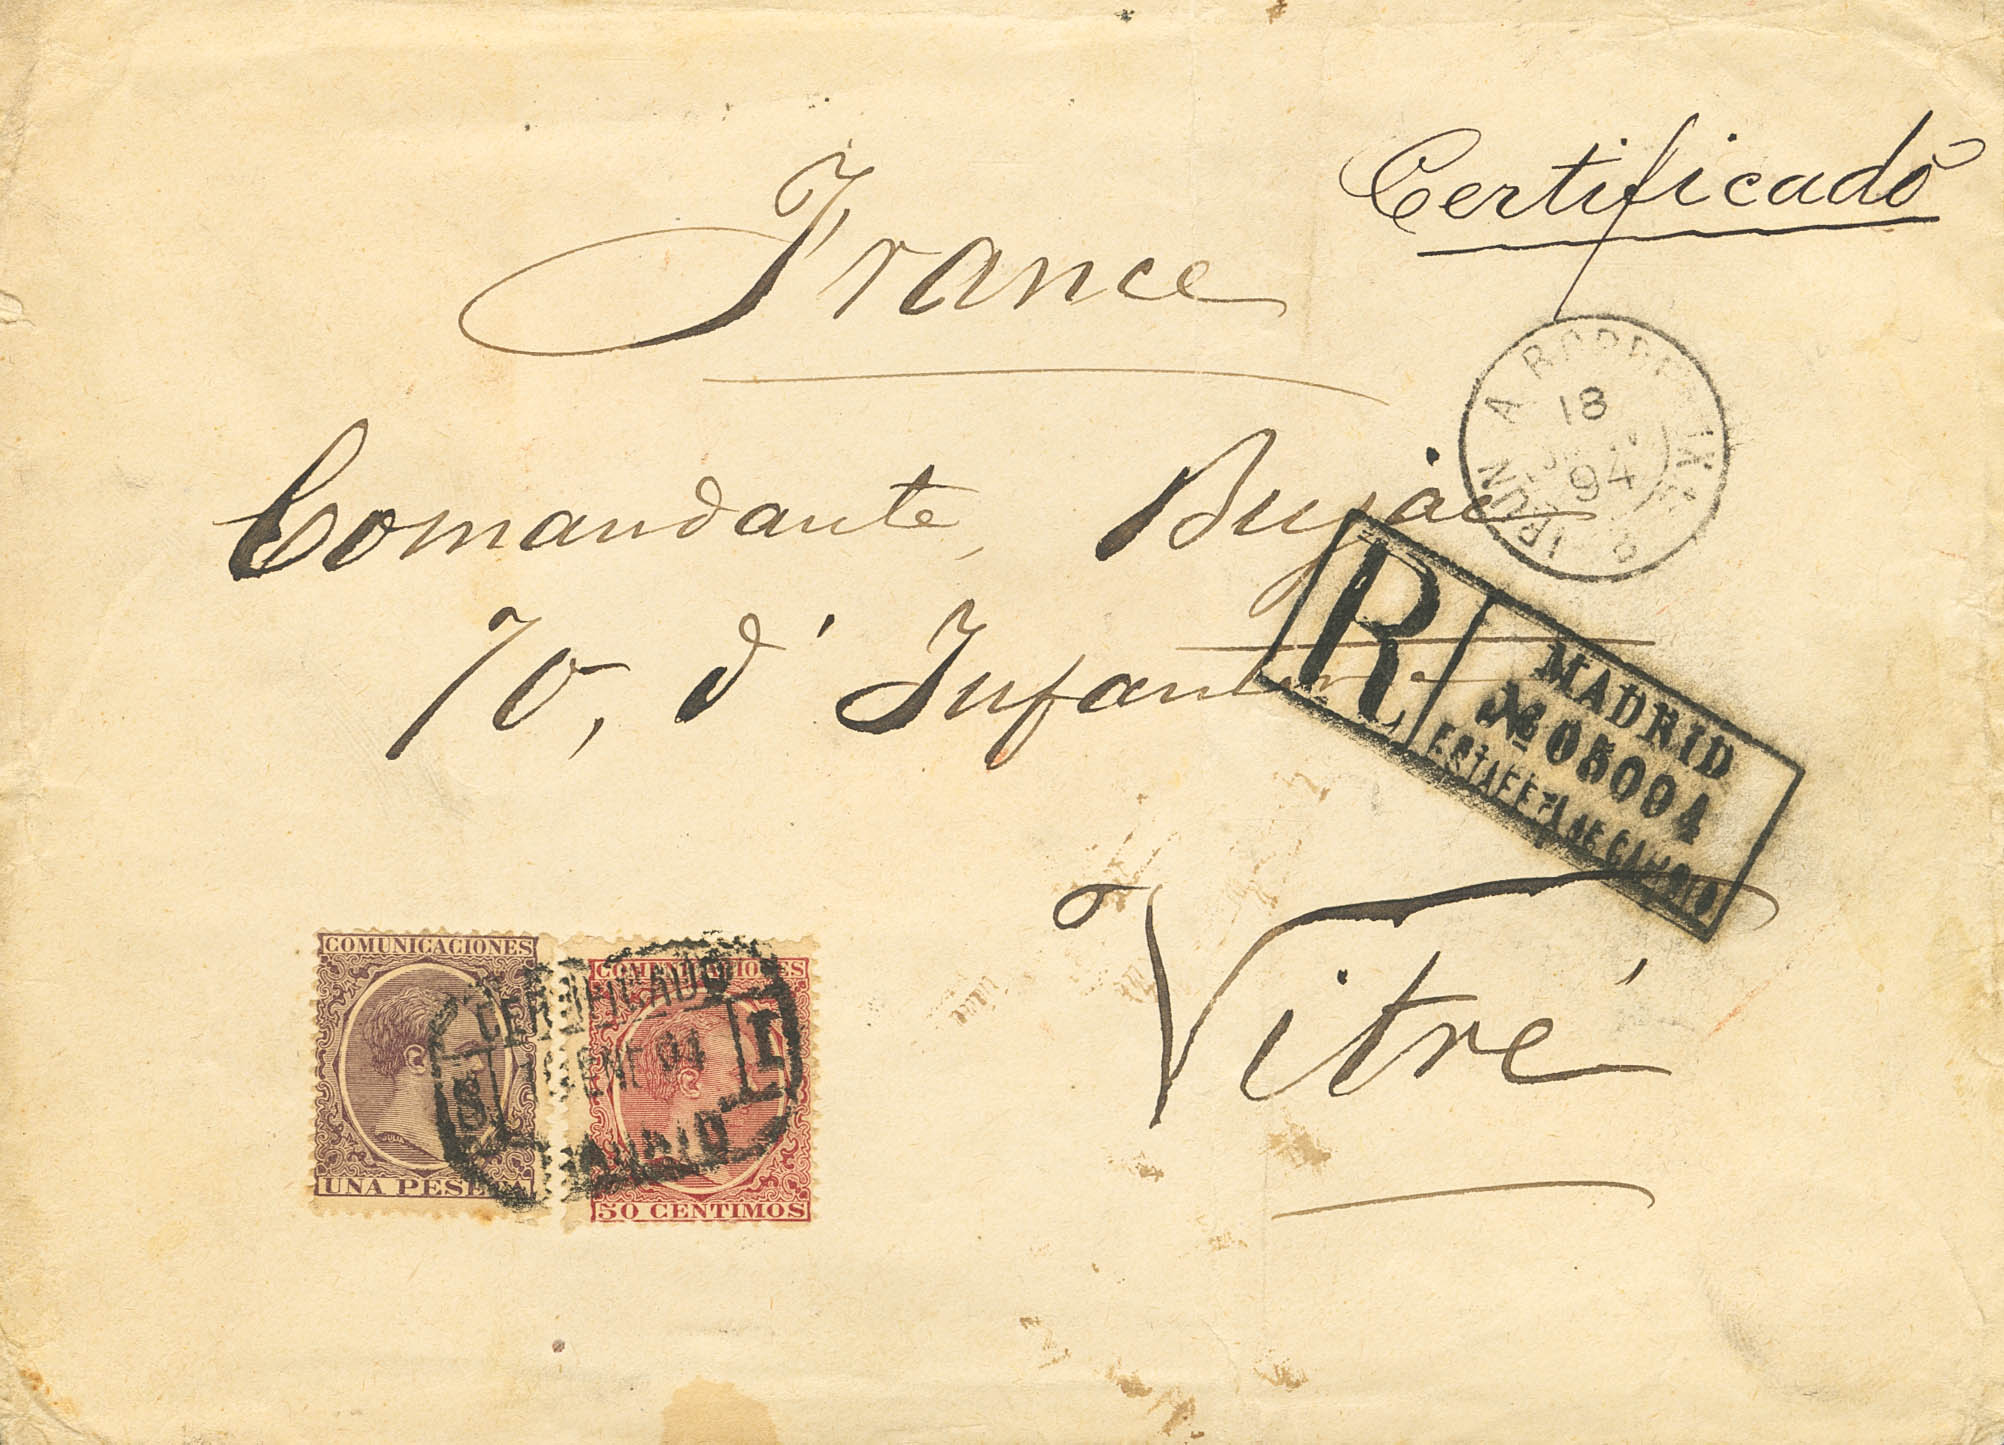 Certificado
France
Comandante, Bujac
70, d' Infanterie
Vitré
IRUN A BORDEAUX
18
94
R
MADRID
№ 05094
ESTAFETA DE CAMBIO
COMUNICACIONES
UNA PESETA
COMUNICACIONES
50 CENTIMOS
CERTIFICADO
ENE 94
1
MADRID